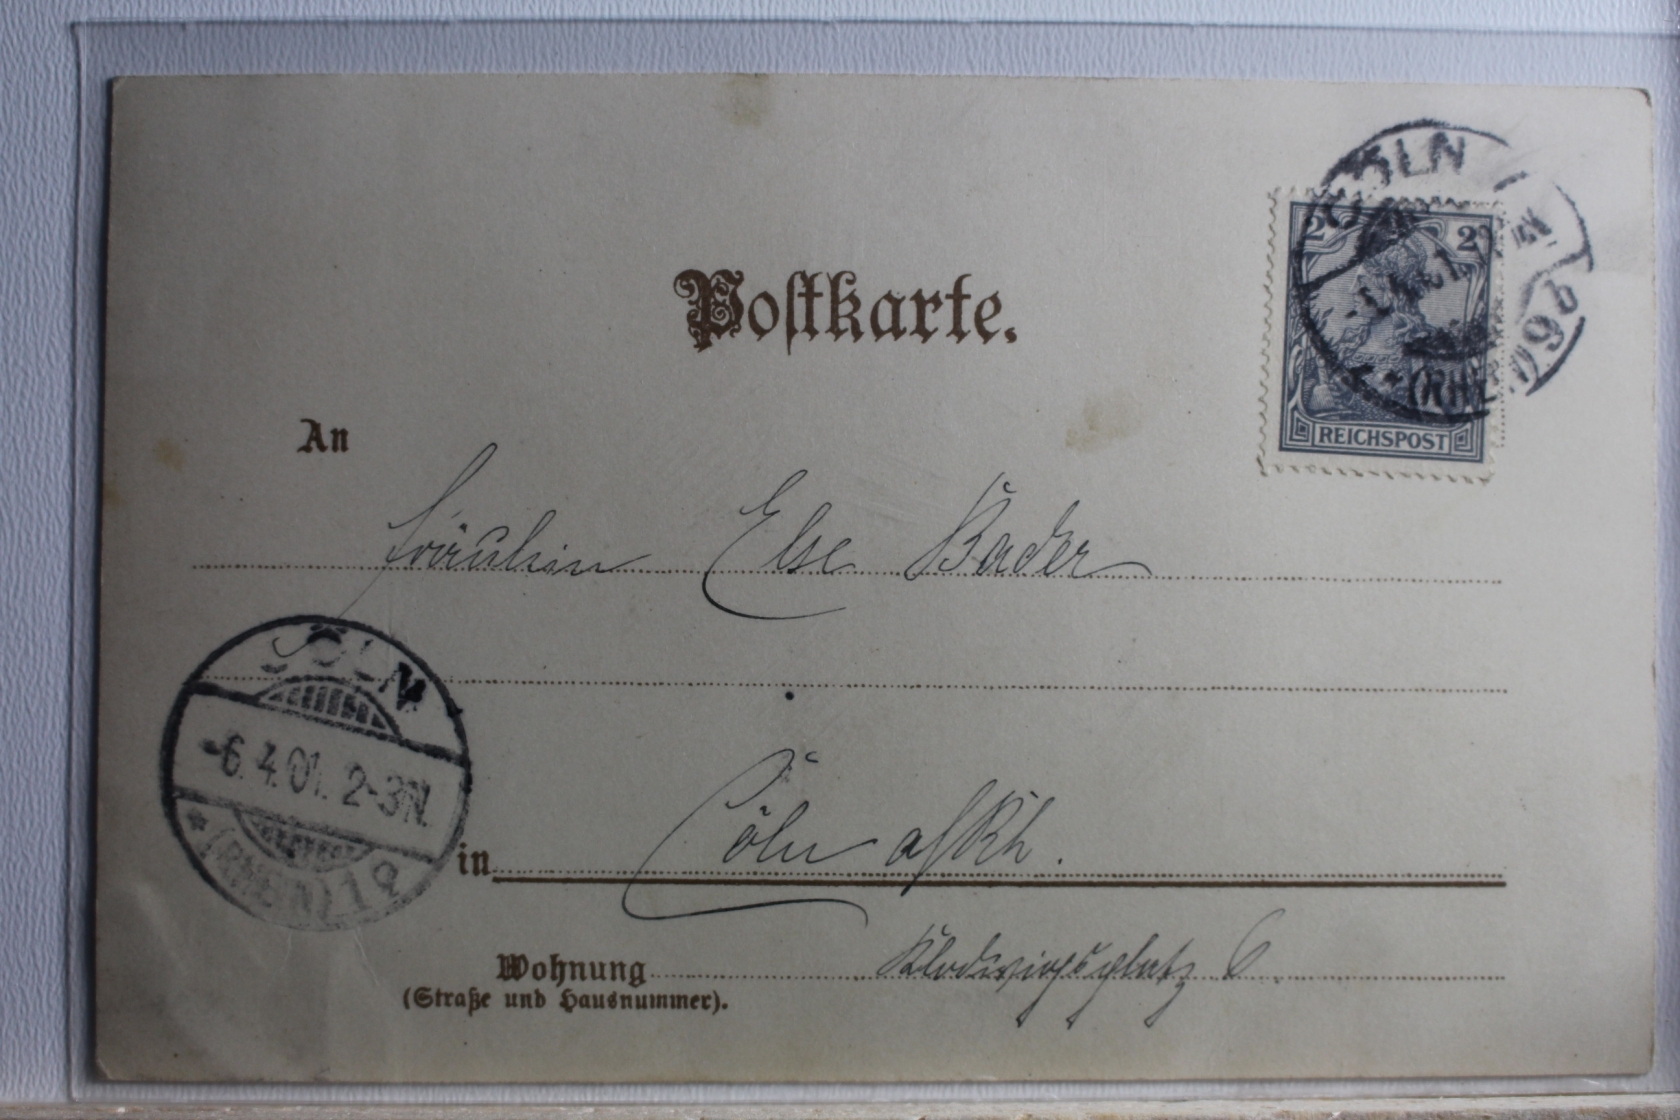 CÖLN
2 2
(RHEIN) 9b
REICHSPOST
Postkarte.
An
Fräulein Else Bader
CÖLN
-6.4.01. 2-3N.
* (RHEIN) 1
in Cöln a/Rh.
Wohnung Klodwigsplatz 6.
(Straße und Hausnummer).